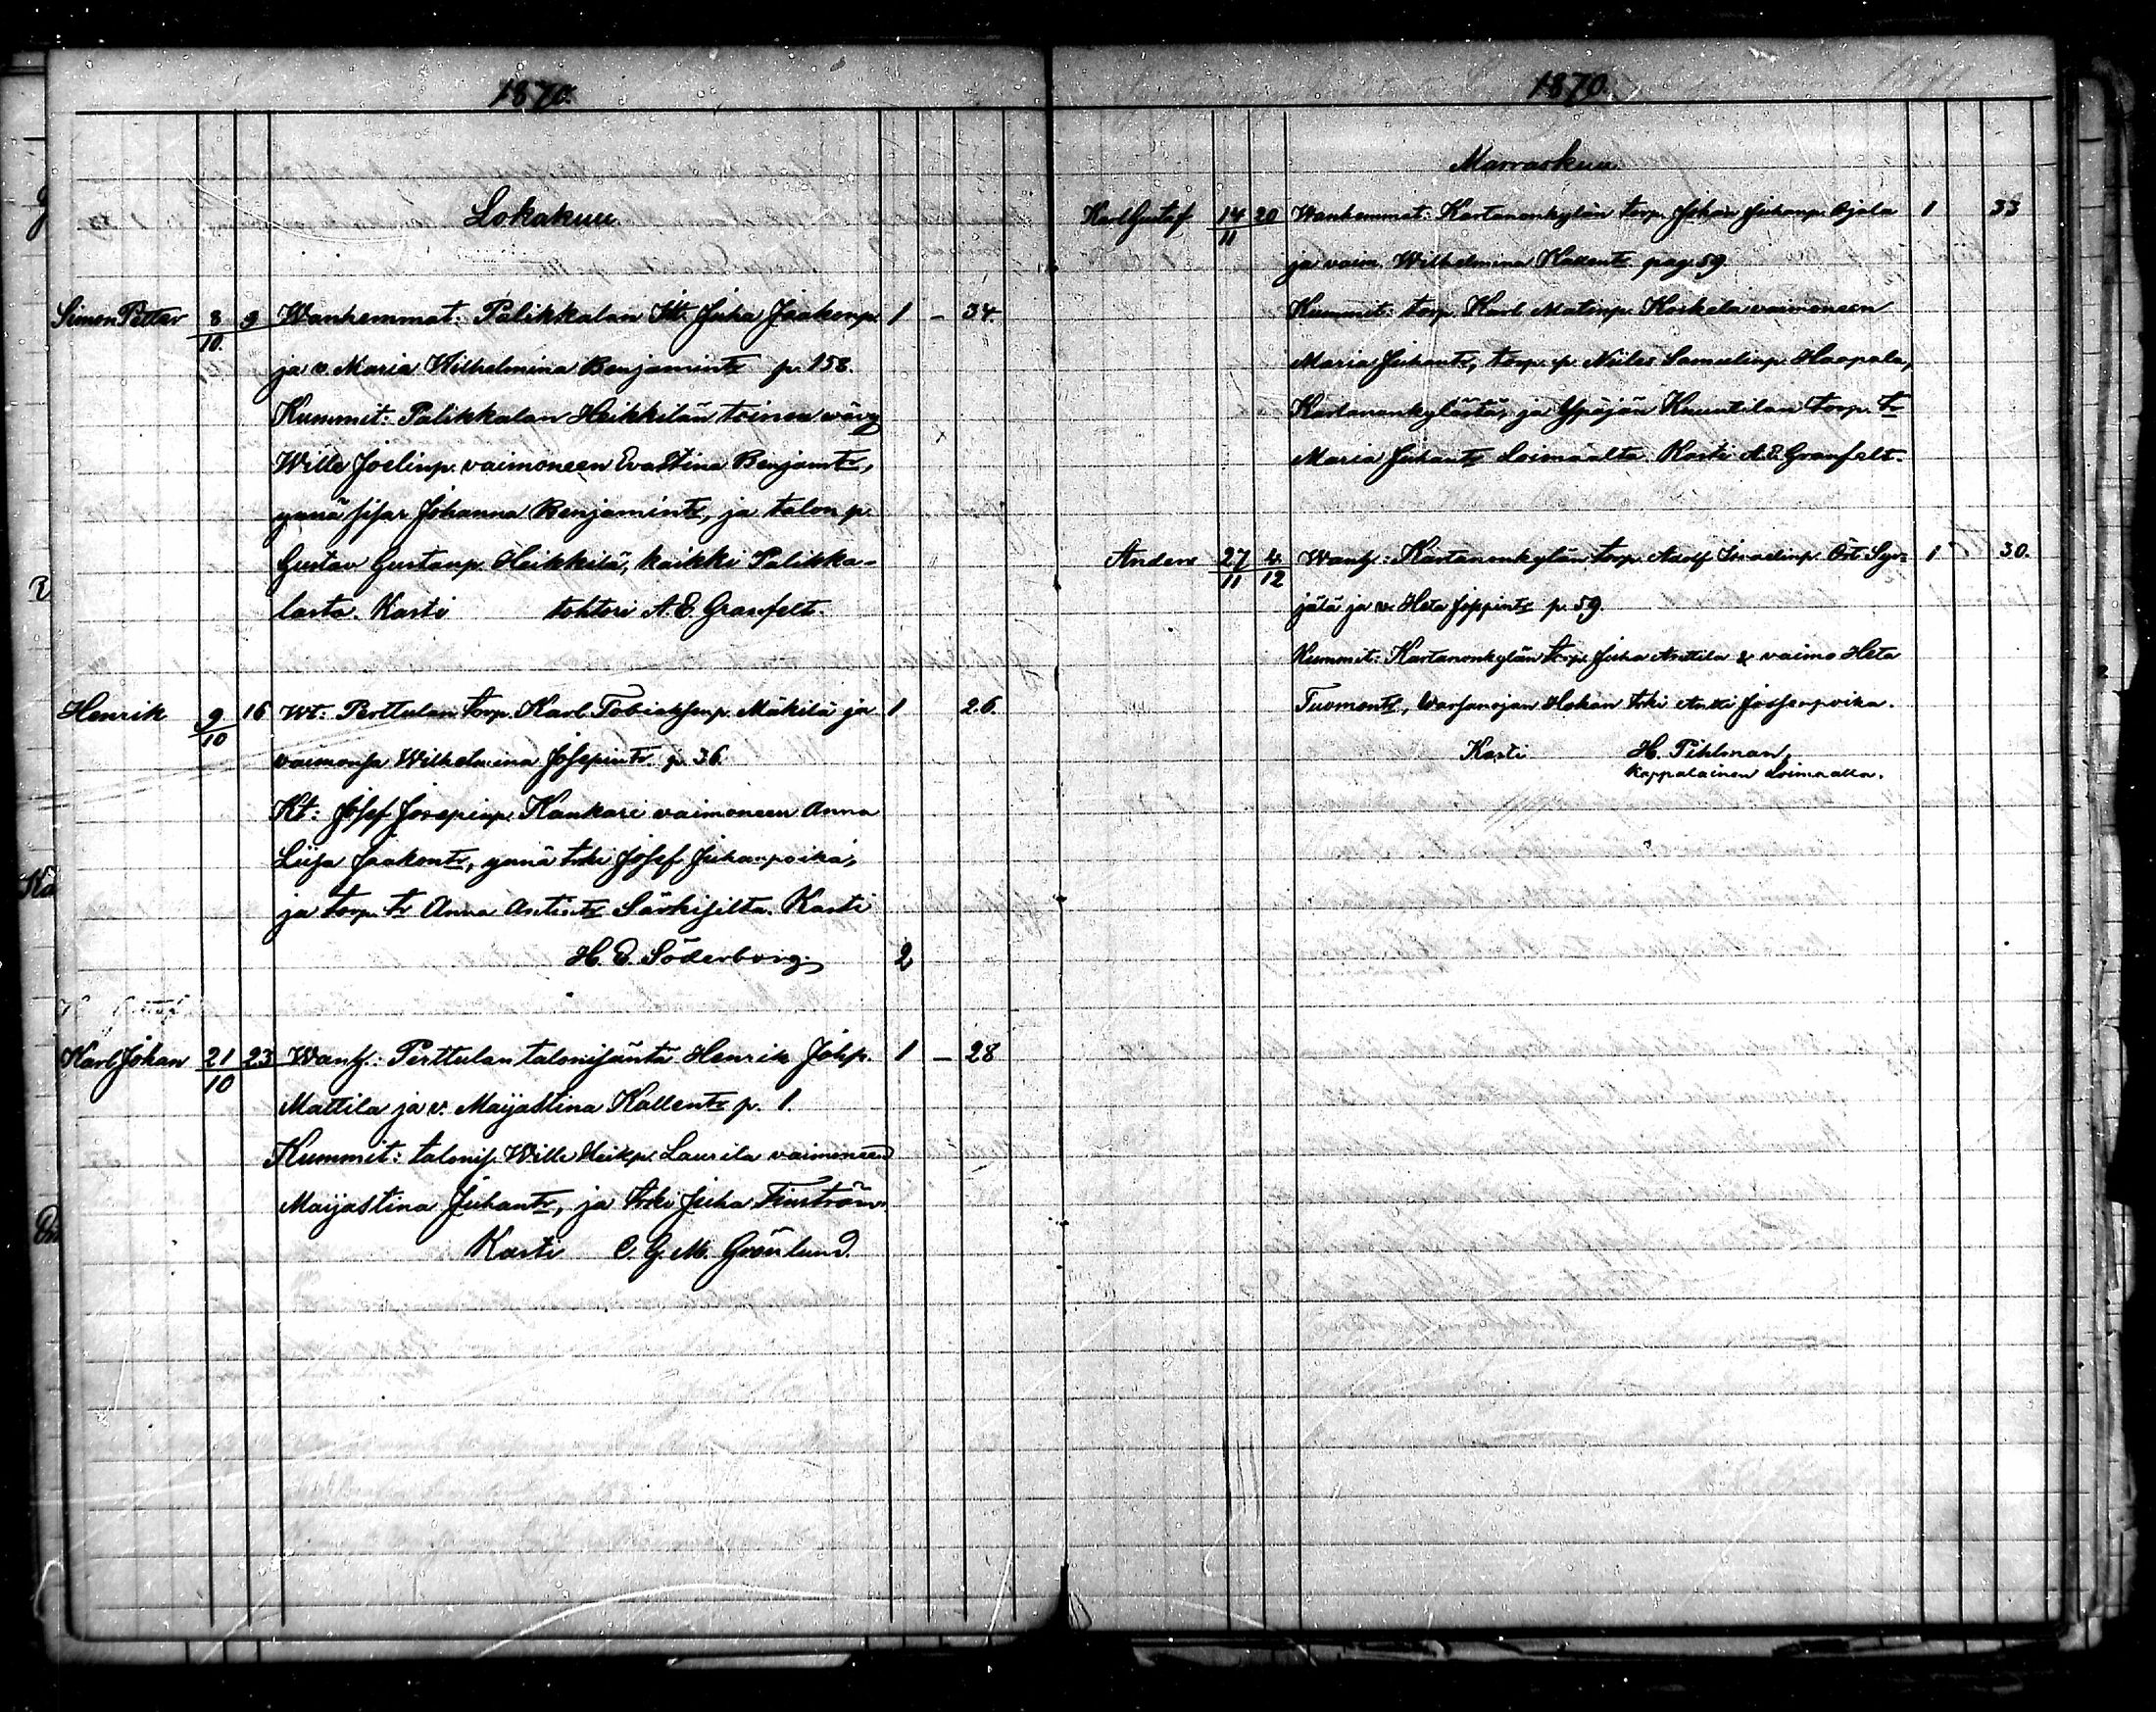 1870.
Lokakuu
Simon Petter 8/10 9 Wanhemmat: Palikkalan Itt. Juha Jaakonp. 1 - 34.
ja v. Maria Wilhelmina Benjamintr p. 158.
Kummit: Palikkalan Heikkilän toinen wävy
Wille Joelinp. vaimoneen Evastina Benjamtr,
ynnä sisar Johanna Benjamintr, ja talon p.
Gustav Gustavp. Heikkilä, kaikki Palikka-
lasta. Kasti tohtori A. E. Granfelt.
Henrik 9/10 16 Wt: Perttulan torp. Karl Tobiaksenp. Mäkilä ja 1 26.
vaimonsa Wilhelmina Josepintr p. 36.
Kt: Josef Josepinp. Kankare vaimoneen Anna
Liisa Jaakontr, ynnä trki Josef Juhanpoika,
ja torp. tr Anna Antintr Särkisilta. Kasti
H. E. Söderborg. 2
Karl Johan 21/10 23 Wanh.: Perttulan talonisäntä Henrik Johp. 1 - 28
Mattila ja v. Maijastina Kallentr p. 1.
Kummit: talonis. Wille Heikp. Laurila vaimoneen
Maijastina Juhantr, ja trki Juha Finström.
Kasti C. G. M. Grönlund.
1870.
Marraskuu
Karl Gustaf 14/11 20 Wanhemmat: Kartanonkylän torp. Johan Juhanp. Ojala 1 33
ja vaim. Wilhelmina Kallentr pag. 59.
Kummit: torp. Karl Matinp. Koskela vaimoneen
Maria Juhantr, torp. p. Niiles Samulinp. Haapala,
Kartanonkylästä, ja Ypäjän Knuutilan torp. tr
Maria Juhantr Loimaalta. Kasti A. E. Granfelt.
Anders 27/11 4/12 Wanh.: Kartanonkylän torp. Adolf Israelinp. Öst Syr- 1 30.
jälä ja v. Heta Joppintr p. 59.
Kummit: Kartanonkylän torp. Juha Anttila & vaimo Heta
Tuomontr, Warsanojan Hokan trki Antti Jossenpoika.
Kasti H. Pihlman,
Kappalainen Loimaalla.